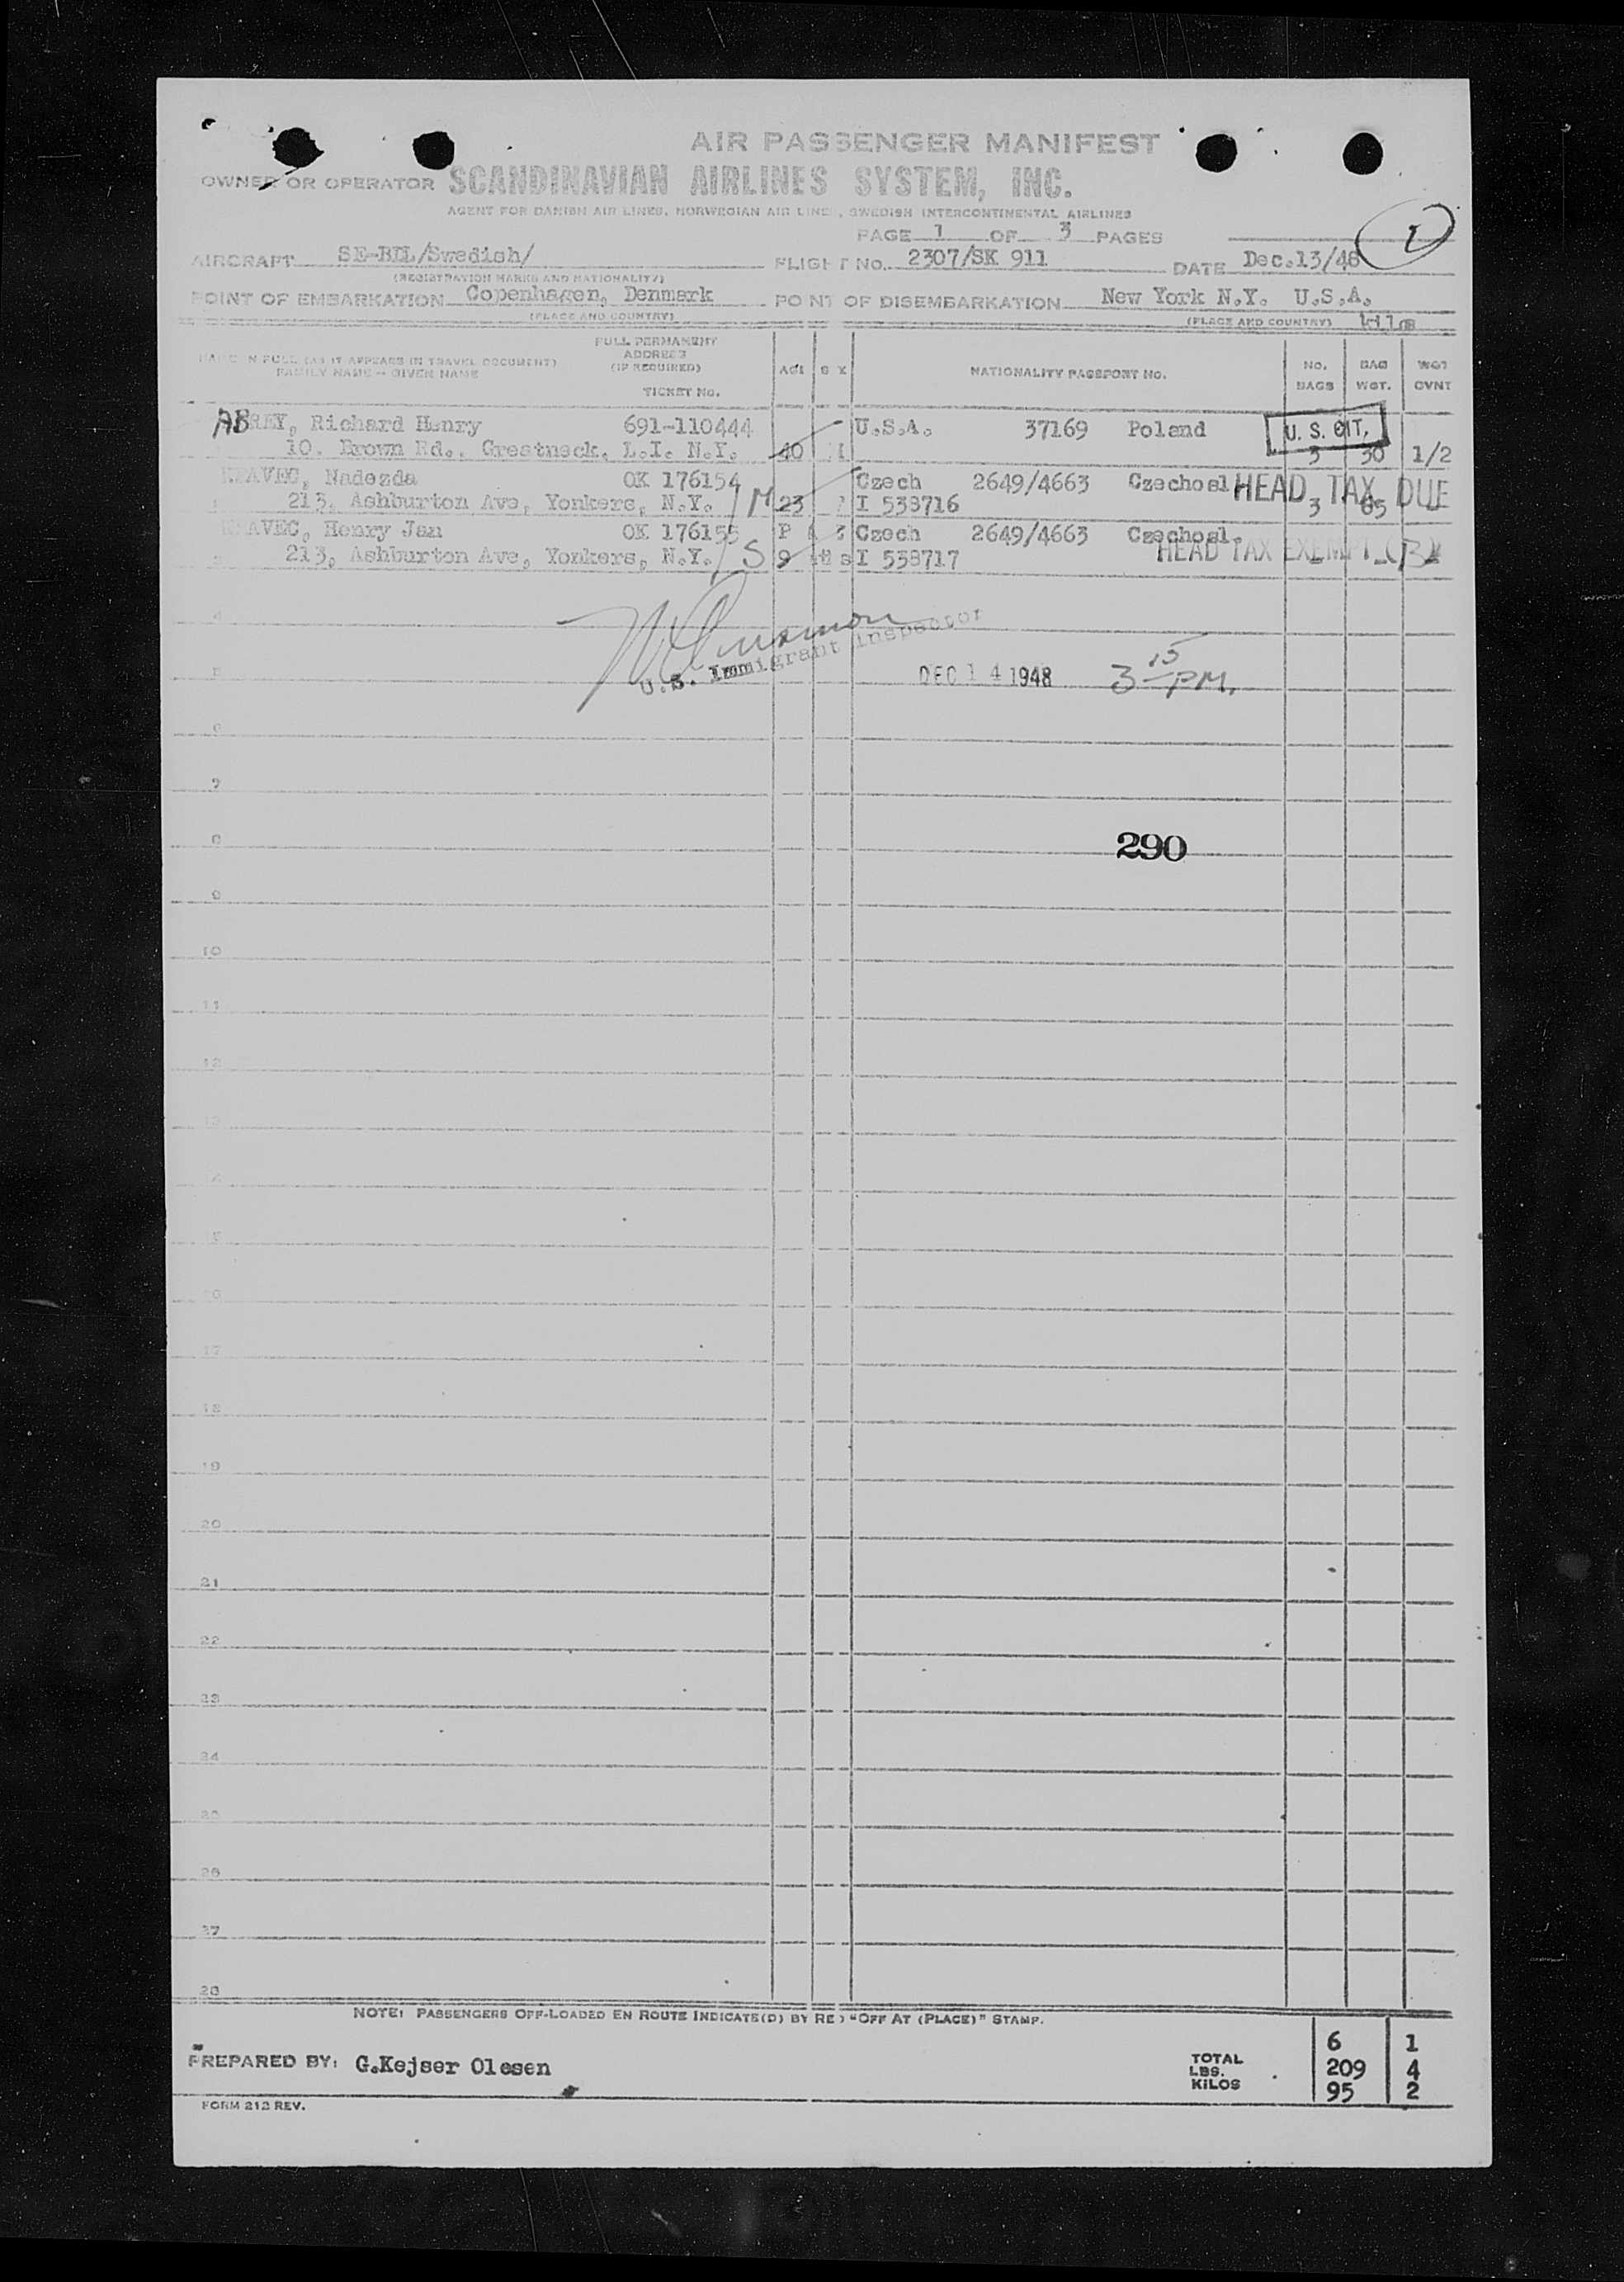 AIR PASSENGER MANIFEST
OWNER OR OPERATOR SCANDINAVIAN AIRLINES SYSTEM, INC.
AGENT FOR DANISH AIR LINES, NORWEGIAN AIR LINES, SWEDISH INTERCONTINENTAL AIRLINES
PAGE 1 OF 3 PAGES
AIRCRAFT SE-BDL/Swedish/ FLIGHT NO. 2307/SK 911 DATE Dec.13/48
(REGISTRATION MARKS AND NATIONALITY)
POINT OF EMBARKATION Copenhagen, Denmark POINT OF DISEMBARKATION New York N.Y. U.S.A.
(PLACE AND COUNTRY) (PLACE AND COUNTRY) kilos
NAME IN FULL (AS IT APPEARS IN TRAVEL DOCUMENT) FAMILY NAME - GIVEN NAME
FULL PERMANENT ADDRESS (IF REQUIRED) TICKET NO.
AGE SEX NATIONALITY PASSPORT NO. NO. BAGS BAG WGT. WGT OVNT
ABREY, Richard Henry 691-110444 U.S.A. 37169 Poland U. S. CIT.
10. Brown Rd., Greatneck, L.I. N.Y. 40 3 30 1/2
Nadezda OK 176154 Czech 2649/4663 Czechosl HEAD TAX DUE
213, Ashburton Ave, Yonkers, N.Y. M 23 I 538716 3 65
Henry Jan OK 176155 Czech 2649/4663 Czechosl.
213, Ashburton Ave, Yonkers, N.Y. S 9 I 538717 HEAD TAX EXEMPT (B)
4
U.S. Immigrant Inspector
5 DEC 14 1948 3 15 PM.
6
7
8 290
9
10
11
12
13
14
15
16
17
18
19
20
21
22
23
24
25
26
27
28
NOTE: PASSENGERS OFF-LOADED EN ROUTE INDICATE(D) BY RED "OFF AT (PLACE)" STAMP.
PREPARED BY: G.Kejser Olesen
TOTAL 6 1
LBS. 209 4
KILOS 95 2
FORM 212 REV.